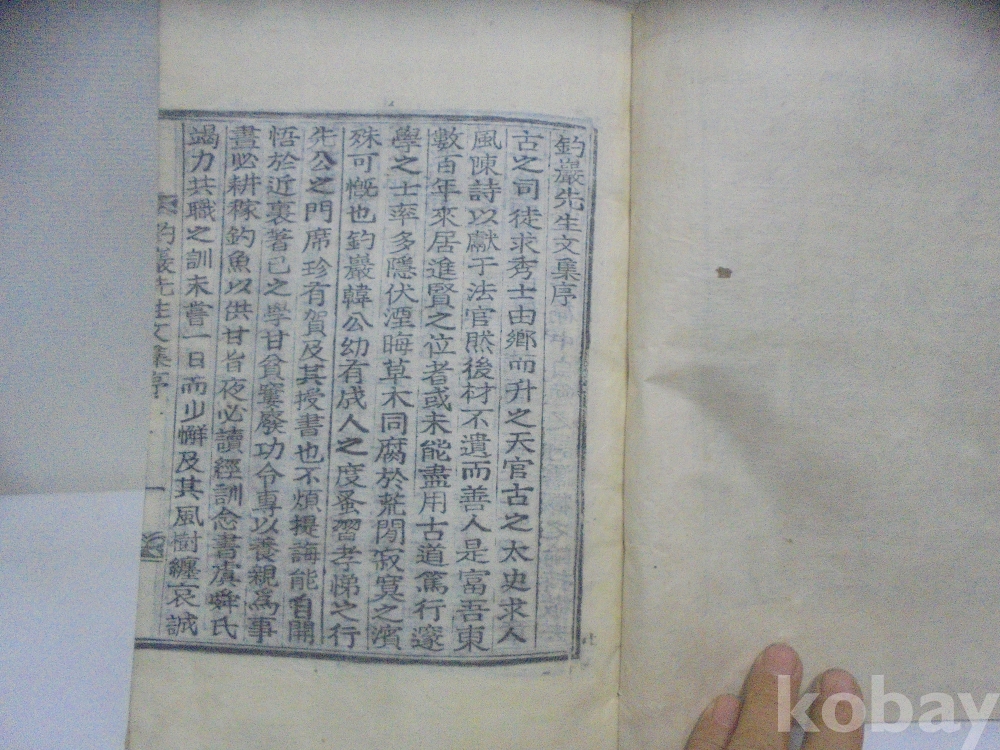 釣巖先生文集序
古之司徒求秀士由鄕而升之天官古之太史求人
風陳詩以獻于法官然後材不遺而善人是富吾東
數百年來居進賢之位者或未能盡用古道篤行邃
學之士率多隱伏湮晦草木同腐於荒閒寂寞之濱
殊可慨也釣巖韓公幼有成人之度蚤習孝悌之行
先公之門席珍有賀及其授書也不煩提誨能自開
悟於近裏著己之學甘貧窶廢功令專以養親爲事
晝必耕稼釣魚以供甘旨夜必讀經訓念書虞舜氏
竭力共職之訓未嘗一日而少懈及其風樹纏哀誠
釣巖先生文集序 一
kobay